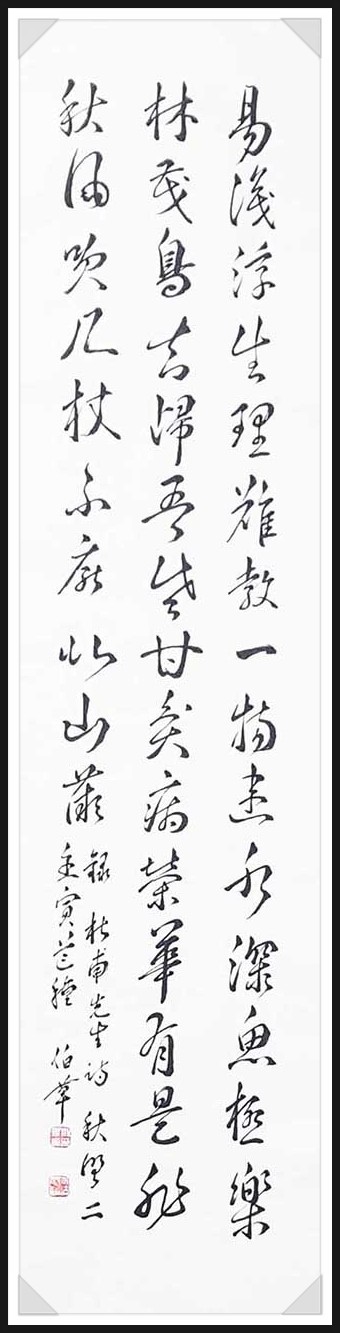 易識浮生理難教一物違水深魚極樂
林茂鳥知歸吾老甘貧病榮華有是非
秋風吹几杖不厭此山薇
錄杜甫先生詩 秋野二
壬寅芒種 伯華